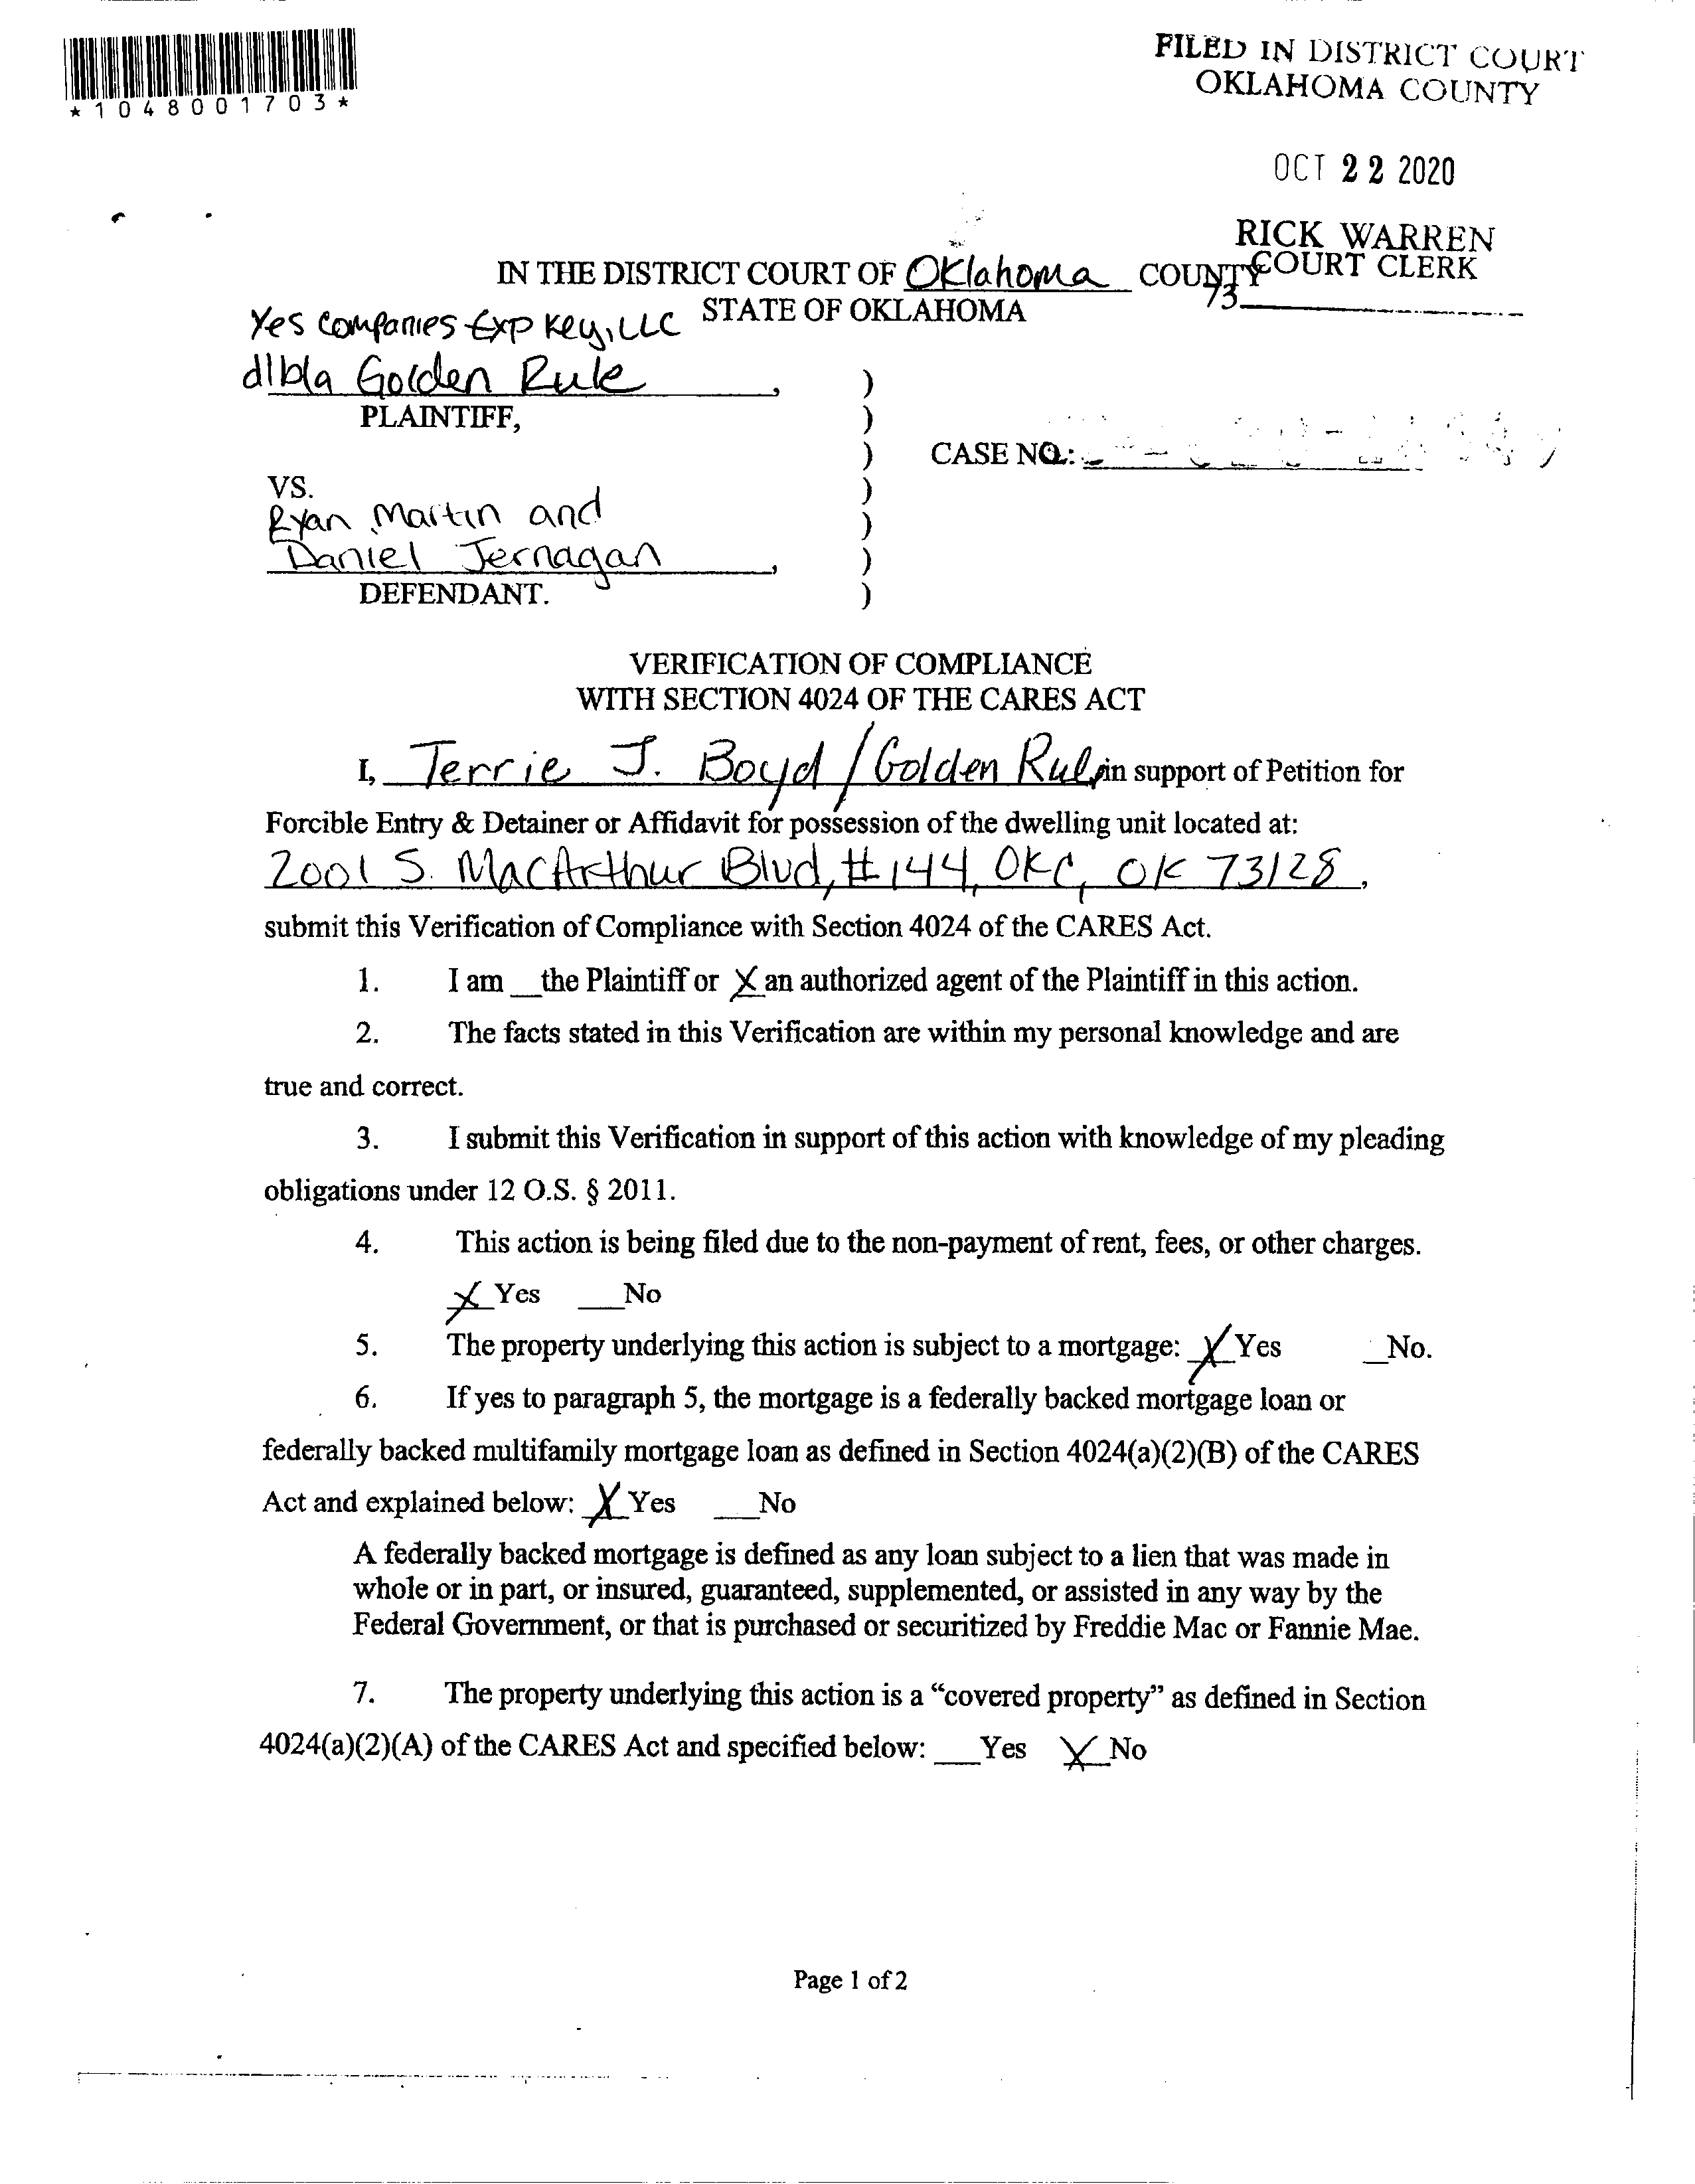 *1048001703*
FILED IN DISTRICT COURT
OKLAHOMA COUNTY
OCT 22 2020
RICK WARREN
COURT CLERK
73
IN THE DISTRICT COURT OF Oklahoma COUNTY
STATE OF OKLAHOMA
Yes Companies Exp Key, LLC
d/b/a Golden Rule,
PLAINTIFF,
CASE NO.:
VS.
Ryan Martin and
Daniel Jernagan,
DEFENDANT.
)
)
)
)
)
)
)
VERIFICATION OF COMPLIANCE
WITH SECTION 4024 OF THE CARES ACT
I, Terrie J. Boyd / Golden Rule, in support of Petition for
Forcible Entry & Detainer or Affidavit for possession of the dwelling unit located at:
2001 S. MacArthur Blvd, #144, OKC, OK 73128,
submit this Verification of Compliance with Section 4024 of the CARES Act.
1. I am __the Plaintiff or X an authorized agent of the Plaintiff in this action.
2. The facts stated in this Verification are within my personal knowledge and are
true and correct.
3. I submit this Verification in support of this action with knowledge of my pleading
obligations under 12 O.S. § 2011.
4. This action is being filed due to the non-payment of rent, fees, or other charges.
X Yes ___No
5. The property underlying this action is subject to a mortgage: X Yes _No.
6. If yes to paragraph 5, the mortgage is a federally backed mortgage loan or
federally backed multifamily mortgage loan as defined in Section 4024(a)(2)(B) of the CARES
Act and explained below: X Yes ___No
A federally backed mortgage is defined as any loan subject to a lien that was made in
whole or in part, or insured, guaranteed, supplemented, or assisted in any way by the
Federal Government, or that is purchased or securitized by Freddie Mac or Fannie Mae.
7. The property underlying this action is a “covered property” as defined in Section
4024(a)(2)(A) of the CARES Act and specified below: ___Yes X No
Page 1 of 2